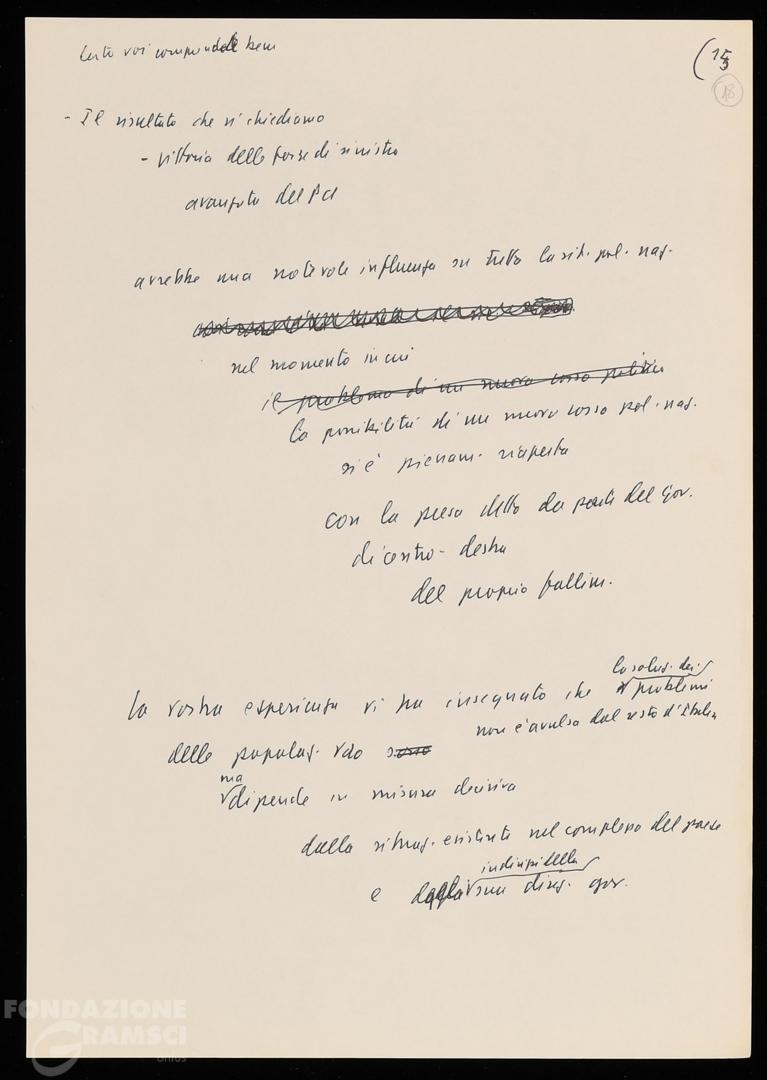 Certo voi comprendete bene
(15
18
- Il risultato che vi chiediamo
- vittoria delle forze di sinistra
avanzata del PCI
avrebbe una notevole influenza su tutta la sit. pol. naz.
nel momento in cui
il problema di un nuovo corso politico
la possibilità di un nuovo corso pol. naz.
si è pienam. riaperta
con la presa d'atto da parte del Gov.
di centro-destra
del proprio fallim.
la soluz. dei
La vostra esperienza vi ha insegnato che problemi
non è avulsa dal resto d'Italia
delle popolaz. vdo sono
ma
dipende in misura decisiva
dalla situaz. esistente nel complesso del paese
indirizzi della
e dalla sua direz. gov.
FONDAZIONE
GRAMSCI
onlus